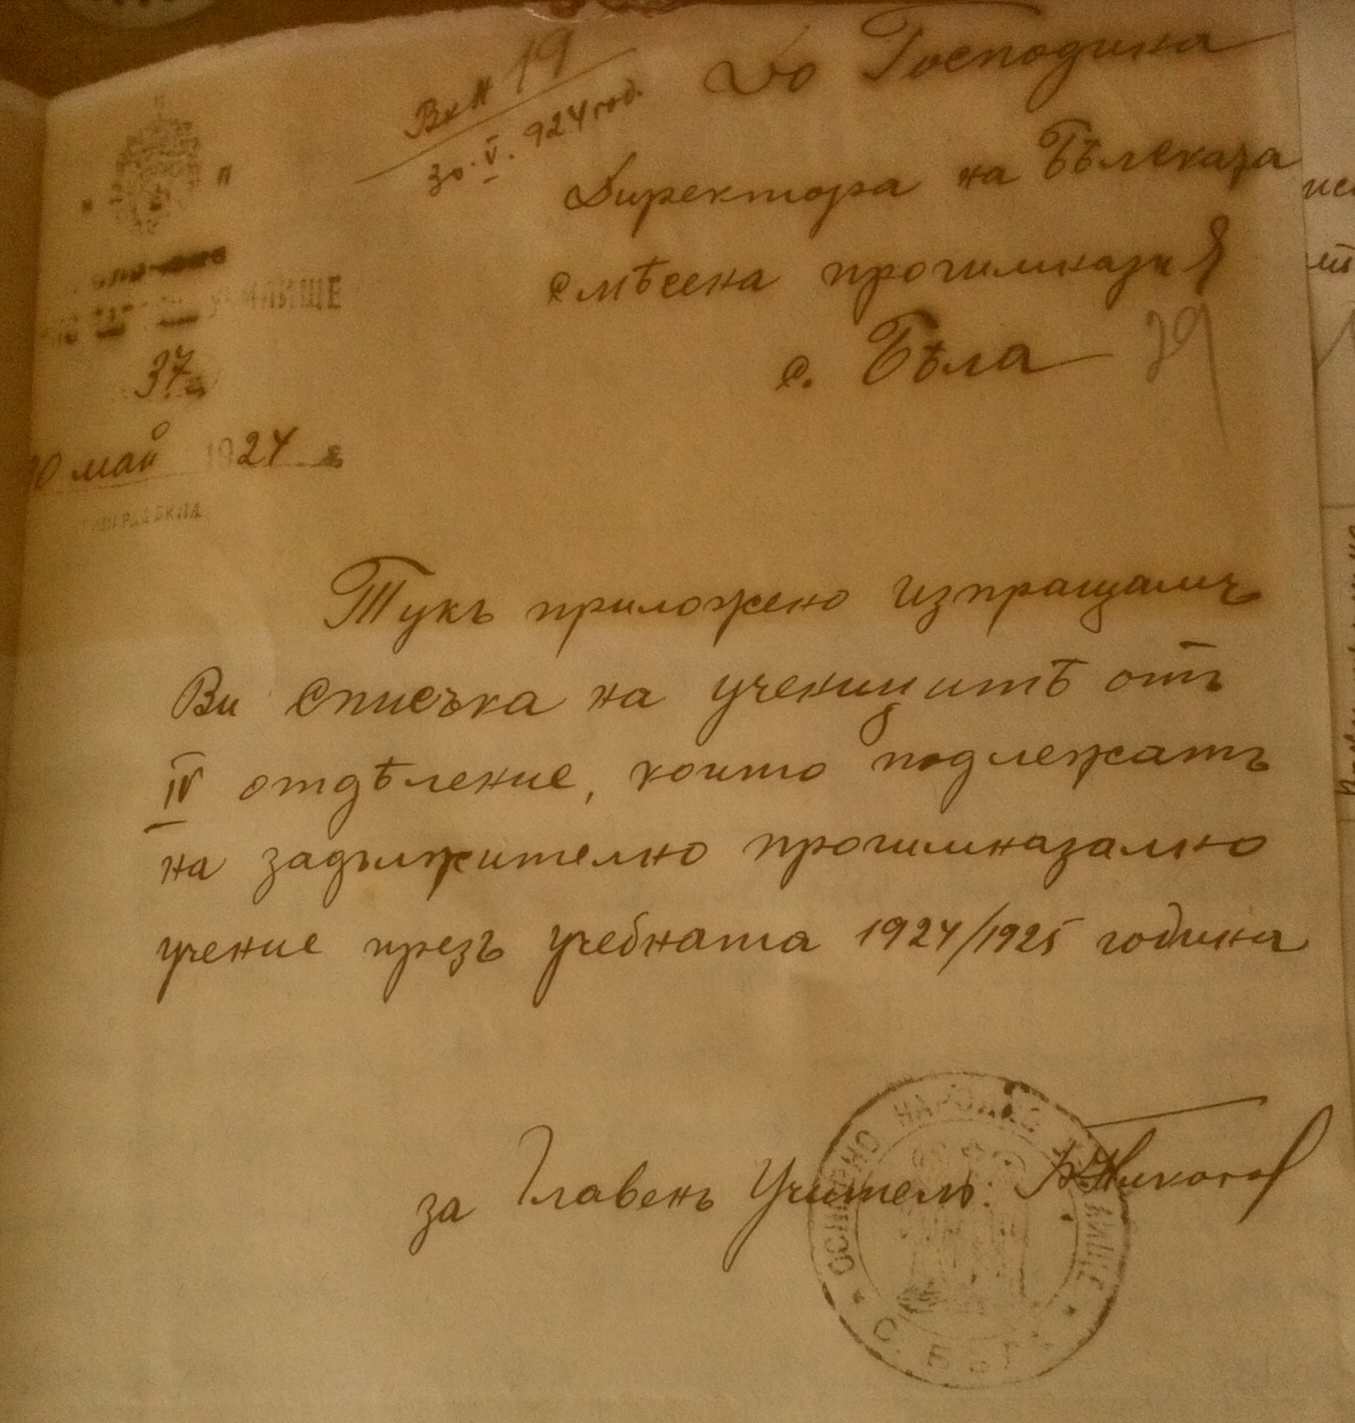 Вх № 19
30. V. 924 год.
До Господина
Директора на Бѣлската
смѣсена прогимназия
с. Бѣла
УЧИЛИЩЕ
37
май 1924
Тукъ приложено изпращамъ
Ви списъка на ученицитѣ отъ
IV отдѣление, които подлежатъ
на задължително прогимназално
учение презъ учебната 1924/1925 година
за Главенъ Учитель:
ОСНОВНО НАРОДНО УЧИЛИЩЕ